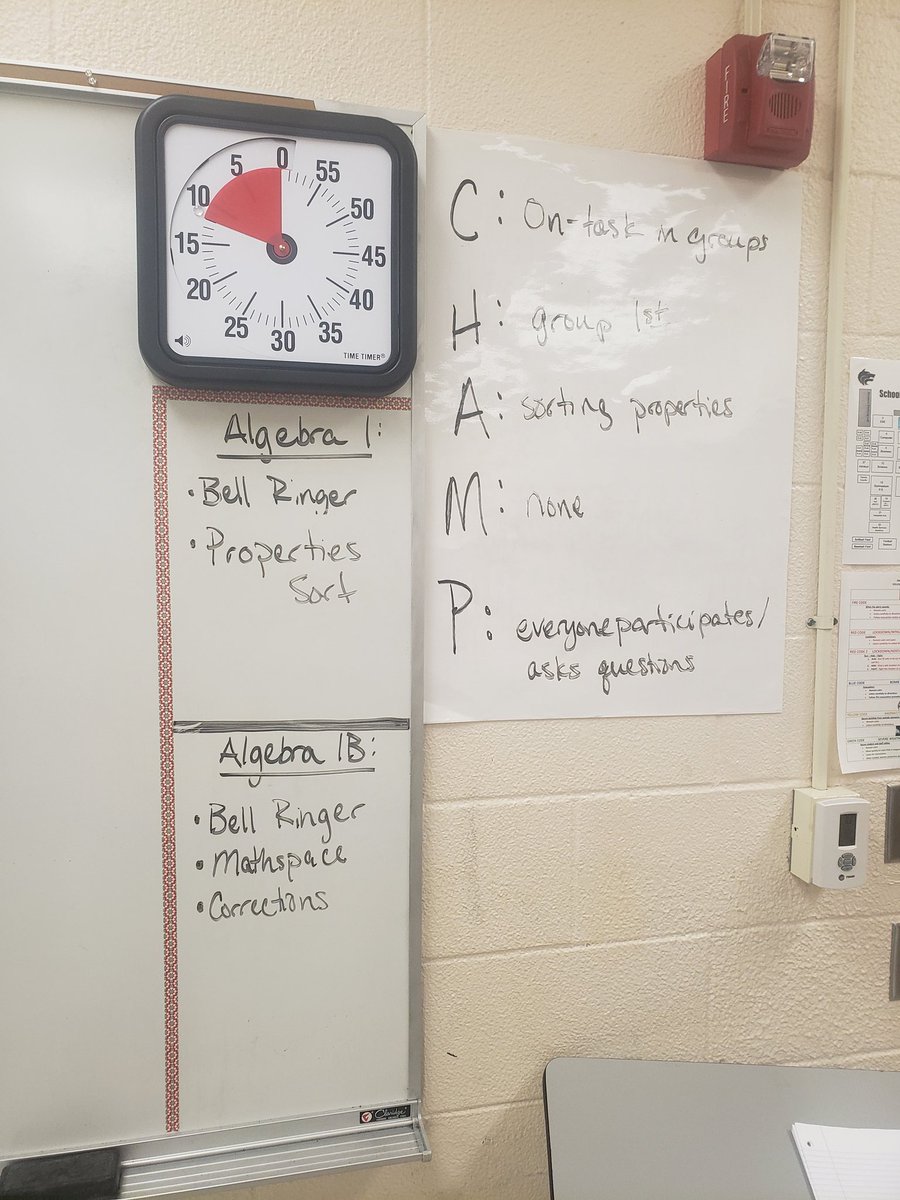 0
55
50
45
40
35
30
25
20
15
10
5
TIME TIMER®
FIRE
C: On-task in groups
H: group 1st
A: sorting properties
M: none
P: everyone participates/
asks questions
Algebra 1:
• Bell Ringer
• Properties
Sort
Algebra 1B:
• Bell Ringer
• Mathspace
• Corrections
Claridge
School